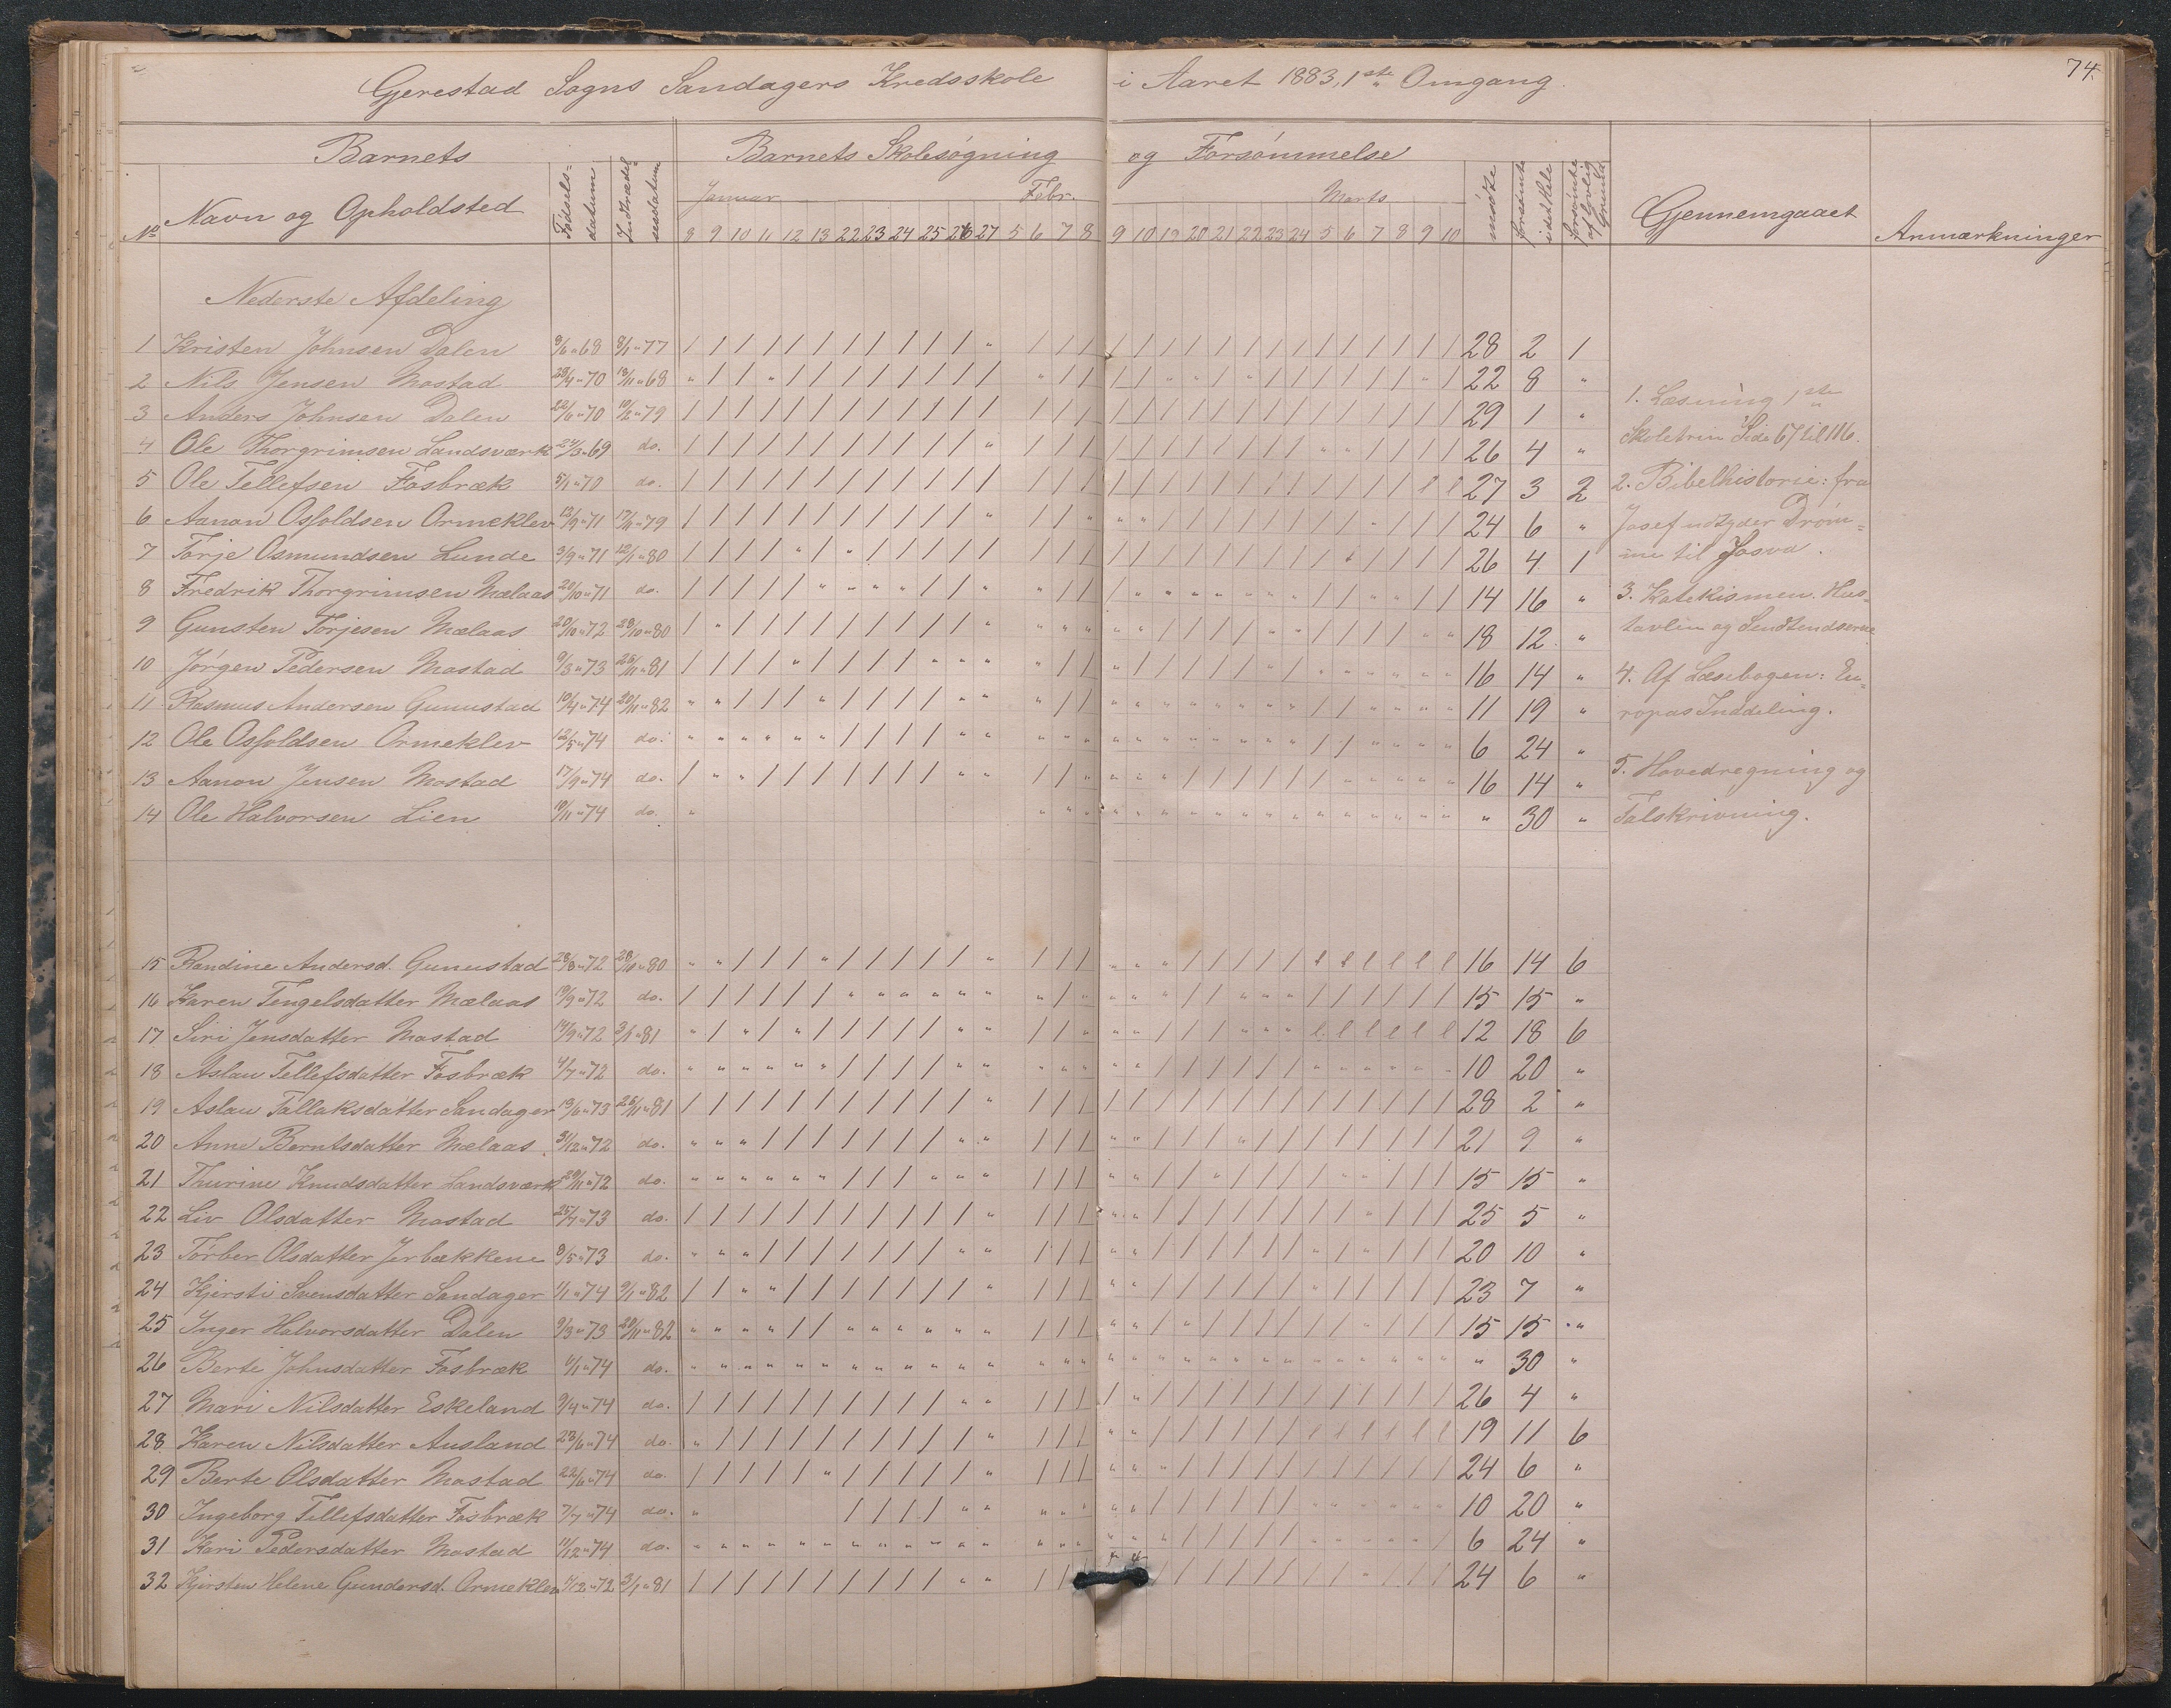 74.
Gjerestad Sogns Sandagers Kredsskole i Aaret 1883, 1ste Omgang.
Barnets Barnets Skolesøgning og Forsømmelse
No Navn og Opholdsted Fødsels-datum Indtrædel-sesdatum Januar Febr. Marts mødte forsømte i det Hele forsømte af lovlig Grund Gjennemgaaet Anmærkninger
8 9 10 11 12 13 22 23 24 25 26 27 5 6 7 8 9 10 19 20 21 22 23 24 5 6 7 8 9 10
Nederste Afdeling
1 Kristen Johnsen Dalen 8/6 " 68 8/1 " 77 28 2 1
2 Nils Jensen Mostad 29/4 " 70 13/11 " 68 22 8 "
3 Anders Johnsen Dalen 22/6 " 70 10/2 " 79 29 1 "
4 Ole Thorgrimsen Landsværk 24/3 " 69 do. 26 4 "
5 Ole Tellefsen Fosbræk 5/1 " 70 do. 27 3 2
6 Aanon Osfoldsen Ormeklev 13/9 " 71 17/11 " 79 24 6 "
7 Torje Osmundsen Lunde 3/9 " 71 12/1 " 80 26 4 1
8 Fredrik Thorgrimsen Mælaas 20/10 " 71 do. 14 16 "
9 Gunsten Torjesen Mælaas 20/10 " 72 28/10 " 80 18 12 "
10 Jørgen Pedersen Mostad 9/3 " 73 25/11 " 81 16 14 "
11 Rasmus Andersen Gunustad 10/4 " 74 20/11 " 82 11 19 "
12 Ole Osfoldsen Ormeklev 12/5 " 74 do. 6 24 "
13 Aanon Jensen Mostad 17/9 " 74 do. 16 14 "
14 Ole Halvorsen Lien 19/11 " 74 do. " 30 "
1. Læsning 1ste
Skoletrin Side 67 til 116.
2. Bibelhistorie: fra
Josef udtyder Drøm=
me til Josva.
3. Katekismen. Hus-
tavlen og
4. Af Læsebogen: Eu-
ropas Inddeling.
5. Hovedregning og
Talskrivning.
15 Randine Andersd. Gunustad 28/8 " 72 28/10 " 80 16 14 6
16 Karen Tengelsdatter Mælaas 19/9 " 72 do. 15 15 "
17 Siri Jensdatter Mostad 14/9 " 72 3/1 " 81 12 18 6
18 Aslau Tellefsdatter Fosbræk 4/7 " 72 do. 10 20 "
19 Aslau Tallaksdatter Sandager 13/6 " 73 25/11 " 81 28 2 "
20 Anne Berntsdatter Mælaas 31/12 " 72 do. 21 9 "
21 Thurine Knudsdatter Landsværk 29/11 " 72 do. 15 15 "
22 Liv Olsdatter Mostad 25/7 " 73 do. 25 5 "
23 Torber Olsdatter Jerbækkene 8/5 " 73 do. 20 10 "
24 Kjersti Svensdatter Sandager 1/1 " 74 9/1 " 82 23 7 "
25 Inger Halvorsdatter Dalen 9/3 " 73 20/11 " 82 15 15 "
26 Berte Johnsdatter Fosbræk 11/1 " 74 do. " 30 "
27 Mari Nilsdatter Eskeland 9/4 " 74 do. 26 4 "
28 Karen Nilsdatter Ausland 23/6 " 74 do. 19 11 6
29 Berte Olsdatter Mostad 22/6 " 74 do. 24 6 "
30 Ingeborg Tellefsdatter Fosbræk 7/7 " 74 do. 10 20 "
31 Kari Pedersdatter Mostad 11/12 " 74 do. 6 24 "
32 Kjersten Helene Gundersd. Ormeklev 4/12 " 72 3/1 " 81 24 6 "